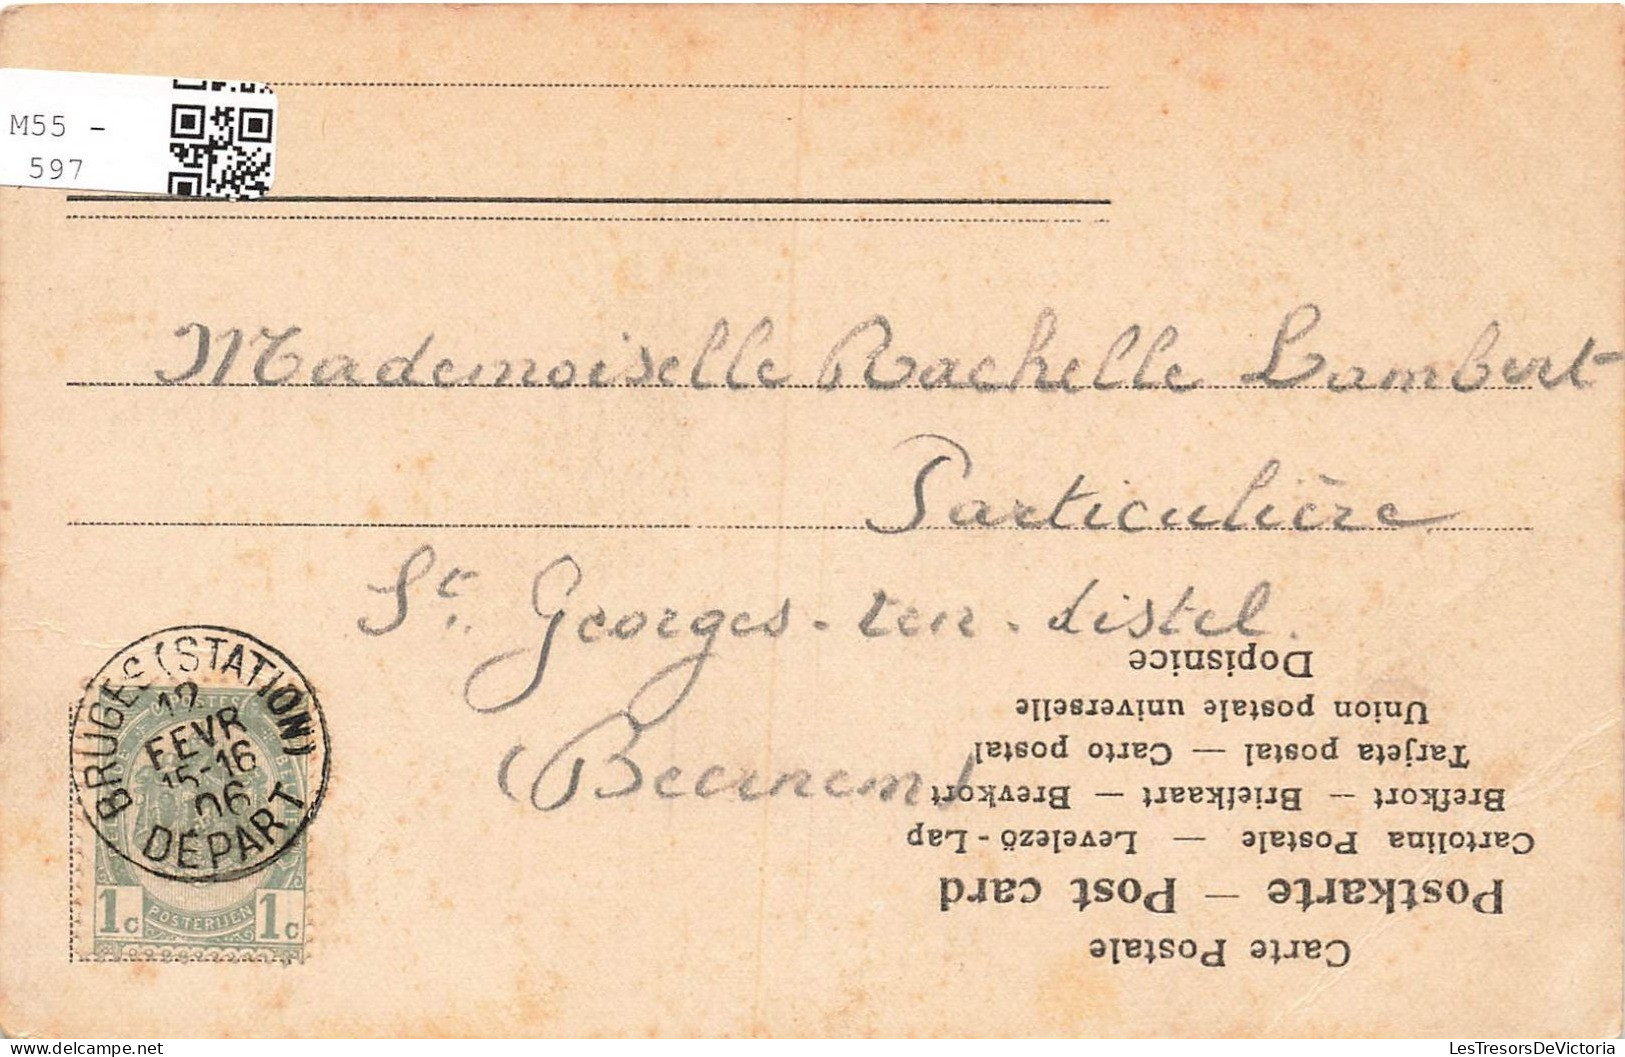 M55 -
597
Mademoiselle Rachelle Lambert
Particulière
St. Georges-ten-distel.
(Beernem)
BRUGES (STATION)
12
FEVR
15-16
06
DEPART
POSTES
1c POSTERIJEN 1c
Dopisnice
Union postale universelle
Tarjeta postal — Carto postal
Brefkort — Briefkaart — Brevkort
Cartolina Postale — Levelező-Lap
Postkarte — Post card
Carte Postale
delcampe.net
LesTresorsDeVictoria